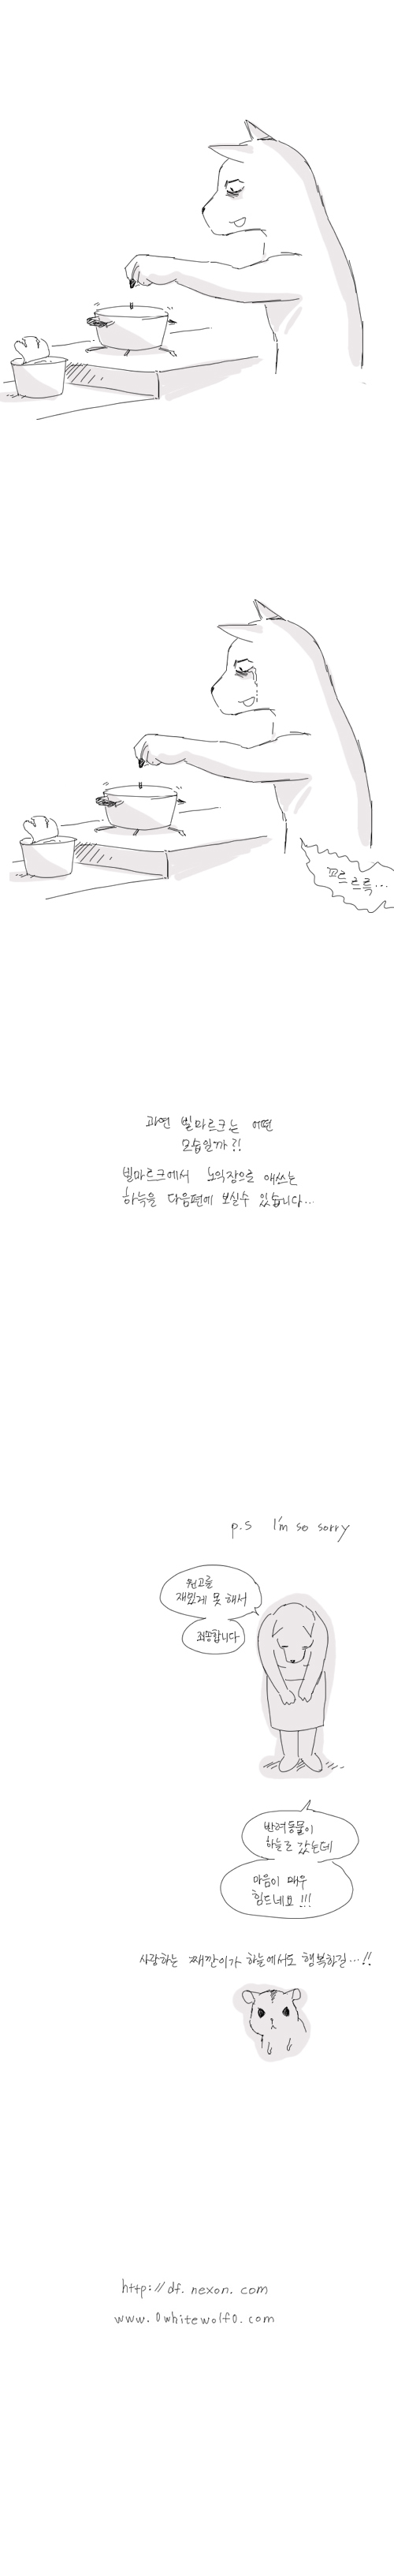 꼬르르륵...
과연 빌마르크는 어떤
모습일까?!
빌마르크에서 노익장으로 애쓰는
하늑을 다음편에 보실수 있습니다...
p.s I'm so sorry
원고를
재밌게 못해서
죄송합니다
반려동물이
하늘로 갔는데
마음이 매우
힘드네요!!!
사랑하는 째깐이가 하늘에서도 행복하길...!!
http://df.nexon.com
www.0whitewolf0.com